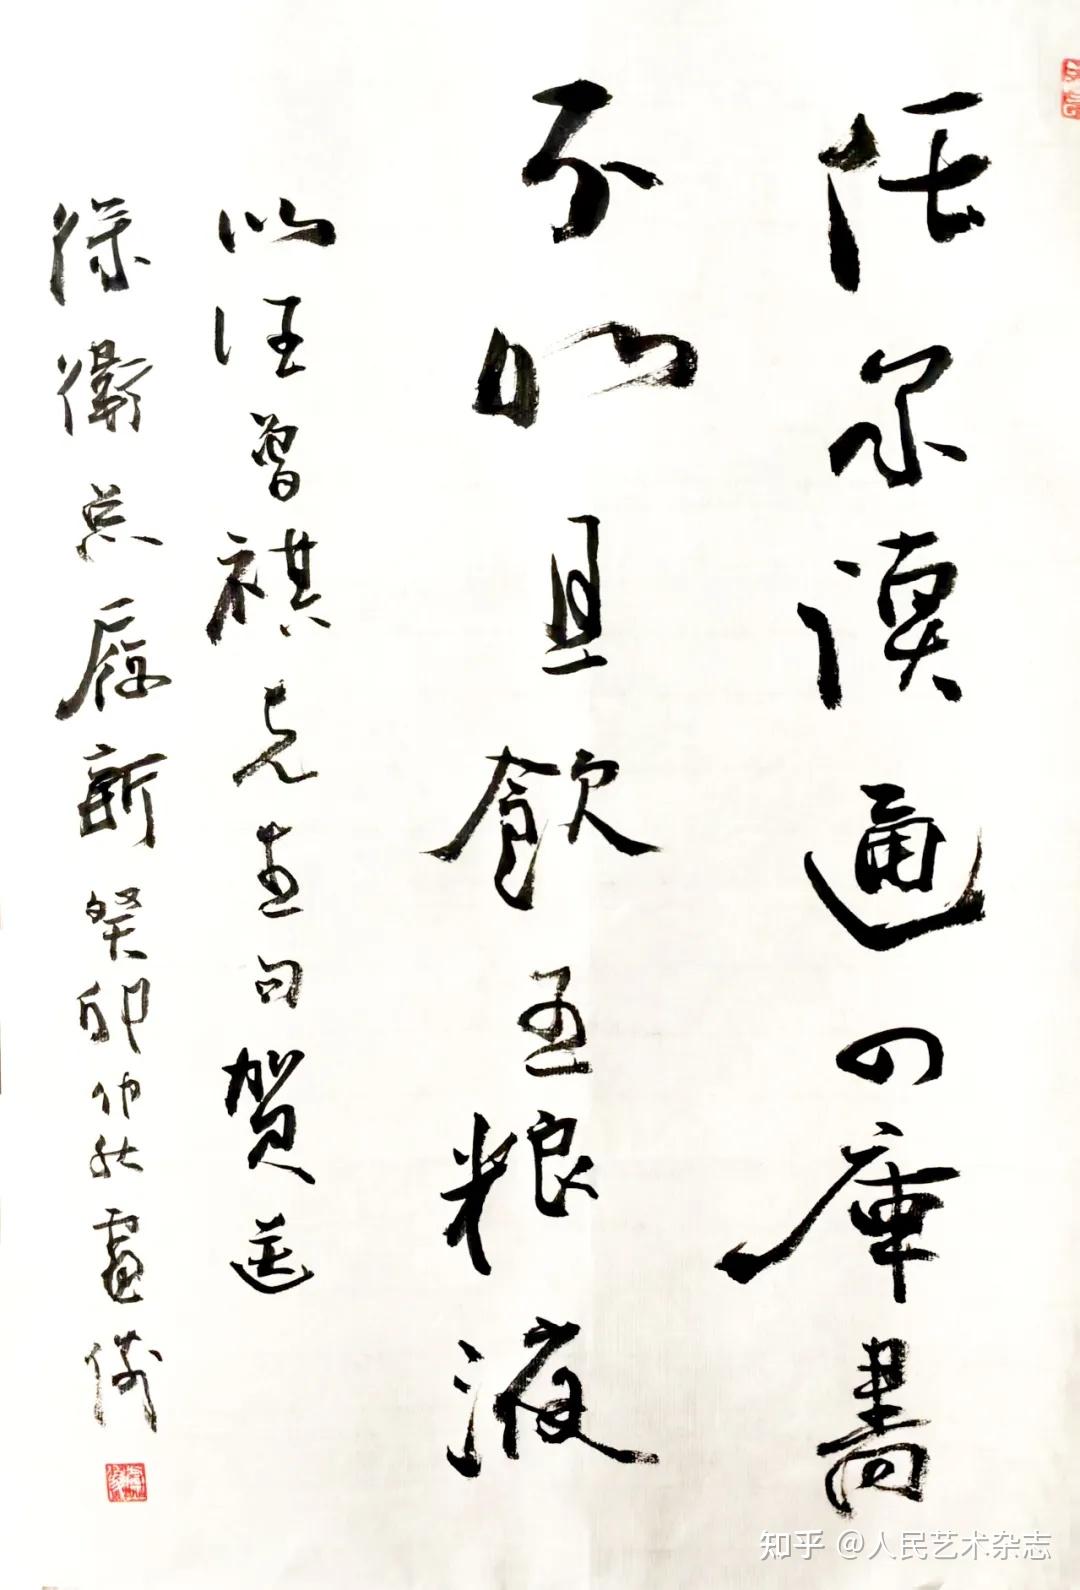 任尔读通四库书
不如且饮五粮液
以汪曾祺先生句贺送
徐卫兄履新癸卯仲秋
知乎 @人民艺术杂志